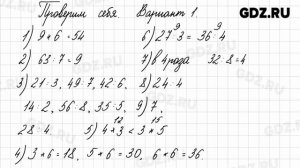 GDZ.RU
Проверим себя Вариант 1.
1) 9 * 6 = 54 6) 27 : 3 = 36 : 4
9 9
2) 63 : 7 = 9 7) в 4 раза 32 : 8 = 4
3) 21 : 3, 49 : 7, 42 : 6, 8) 24 : 4
14 : 2, 56 : 8, 35 : 5, 9) 7,
28 : 4 5) 4 * 3 < 3 * 5
12 15
4) 3 * 6 = 18, 5 * 6 = 30, 6 * 6 = 36
GDZ.RU